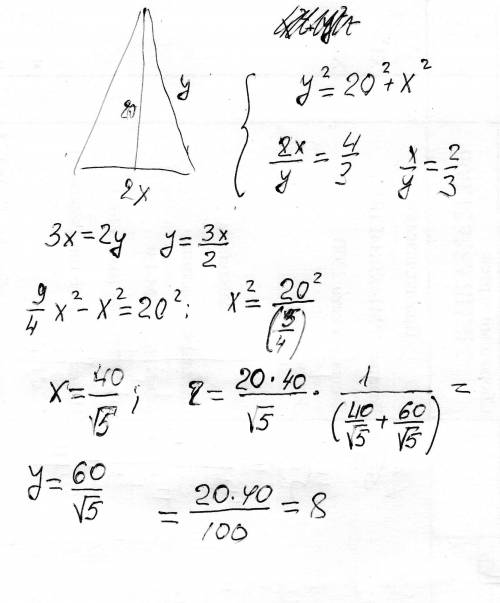 y² = 20² + x²
y
20
2x/y = 4/3 x/y = 2/3
2x
3x = 2y y = 3x/2
9/4 x² - x² = 20²; x² = 20²/(5/4)
x = 40/√5; r = 20·40/√5 · 1/(40/√5 + 60/√5) =
y = 60/√5
= 20·40/100 = 8